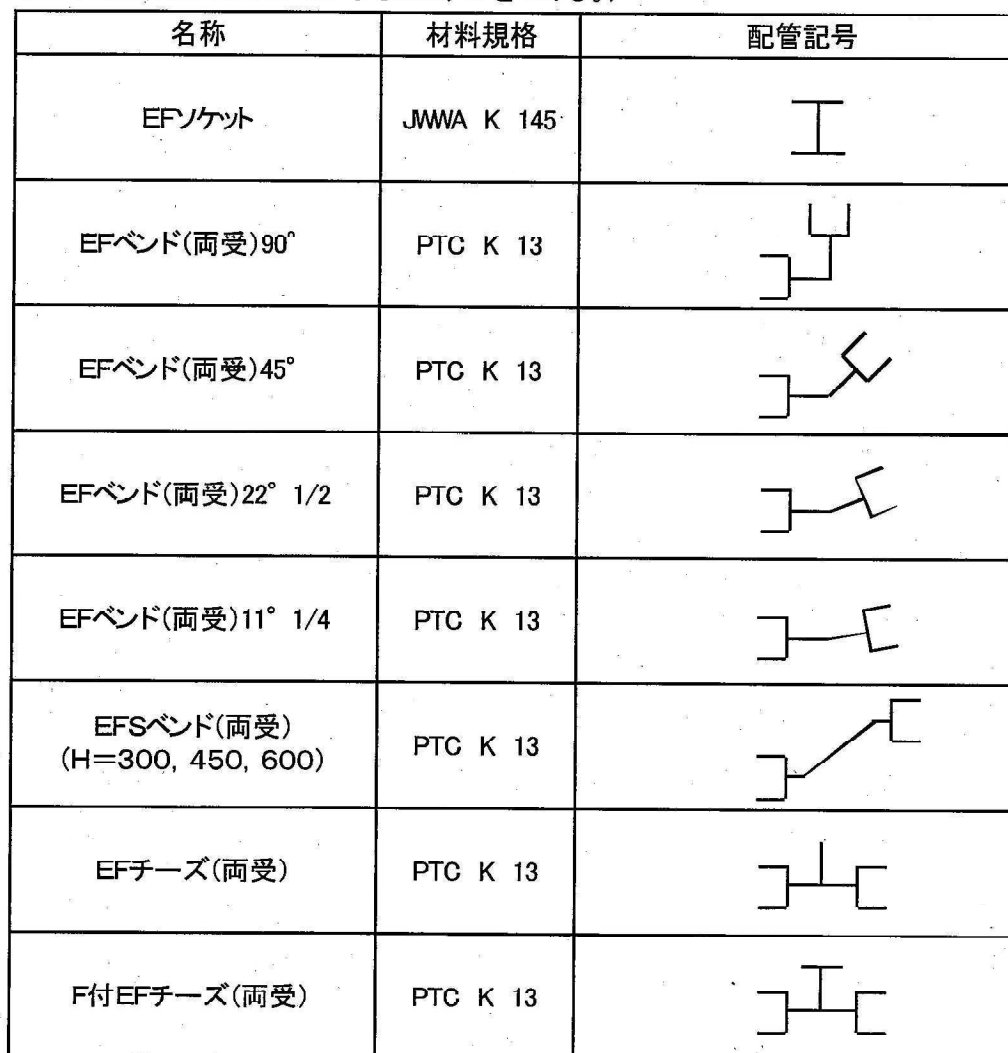 名称 材料規格 配管記号
EFソケット JWWA K 145
EFベンド(両受)90° PTC K 13
EFベンド(両受)45° PTC K 13
EFベンド(両受)22° 1/2 PTC K 13
EFベンド(両受)11° 1/4 PTC K 13
EFSベンド(両受)
(H=300, 450, 600) PTC K 13
EFチーズ(両受) PTC K 13
F付EFチーズ(両受) PTC K 13